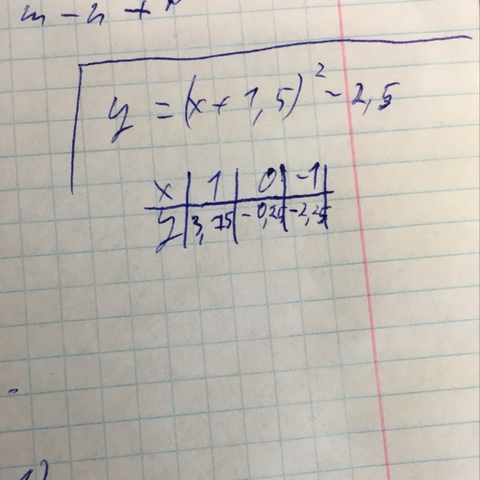 m - n +
y = (x + 1,5)² - 2,5
x | 1 | 0 | -1 |
y | 3,75 | -0,25 | -2,25 |